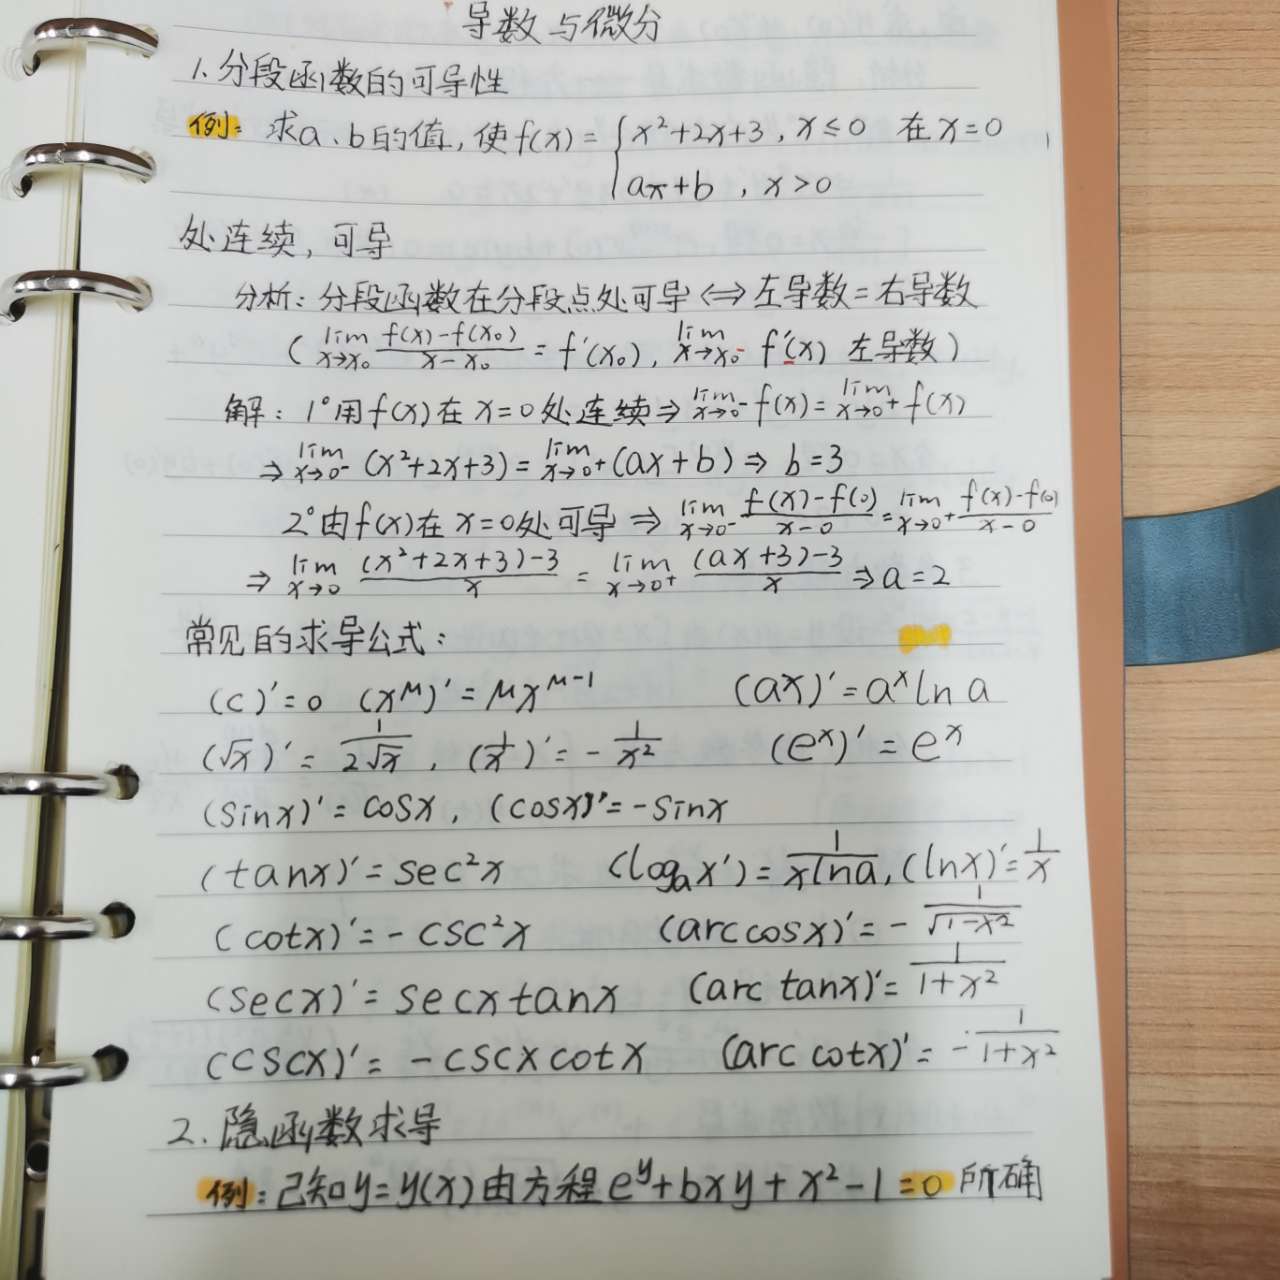 导数与微分
1. 分段函数的可导性
例: 求a、b的值, 使f(x) = { x²+2x+3, x≤0 在x=0
ax+b, x>0
处连续, 可导
分析: 分段函数在分段点处可导 ⇔ 左导数=右导数
( lim x→x₀ (f(x)-f(x₀))/(x-x₀) = f'(x₀), lim x→x₀⁻ f'(x) 左导数 )
解: 1° 用f(x)在x=0处连续 ⇒ lim x→0⁻ f(x) = lim x→0⁺ f(x)
⇒ lim x→0⁻ (x²+2x+3) = lim x→0⁺ (ax+b) ⇒ b=3
2° 由f(x)在x=0处可导 ⇒ lim x→0⁻ (f(x)-f(0))/(x-0) = lim x→0⁺ (f(x)-f(0))/(x-0)
⇒ lim x→0 ((x²+2x+3)-3)/x = lim x→0⁺ ((ax+3)-3)/x ⇒ a=2
常见的求导公式:
(c)'=0 (x^μ)'=μx^(μ-1) (ax)'=a^x ln a
(√x)'= 1/(2√x), (1/x)'= -1/x² (e^x)'=e^x
(sinx)'=cosx, (cosx)'=-sinx
(tanx)'=sec²x (logₐx')=1/(xlna), (lnx)'=1/x
(cotx)'=-csc²x (arccosx)'= -1/√(1-x²)
(secx)'=secxtanx (arc tanx)'= 1/(1+x²)
(cscx)'= -cscxcotx (arc cotx)'= -1/(1+x²)
2. 隐函数求导
例: 已知y=y(x)由方程e^y+bxy+x²-1=0所确